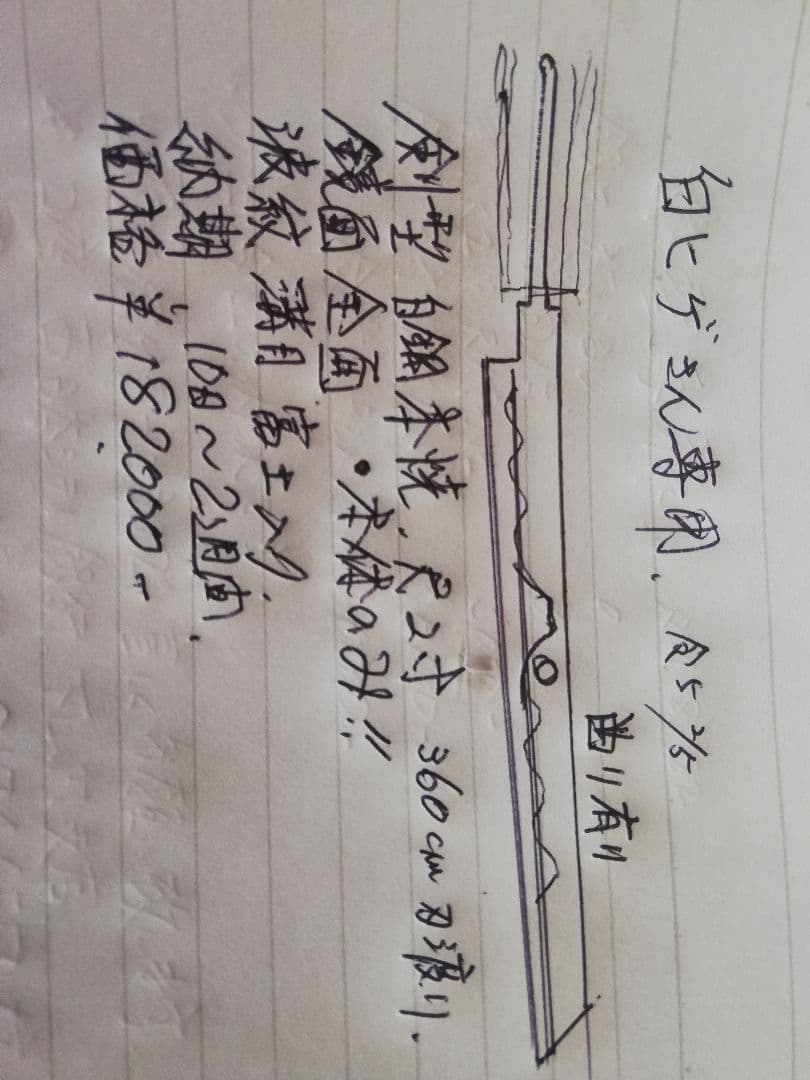 白ヒゲさん専用. 令5 2/5
曲リ有リ
剣型 白鋼本焼. 尺2寸 360cm 刃渡リ.
鏡面 全面 ・本体のみ!!
波紋 満月 富士
納期 10日〜2週間.
価格 ¥182000-